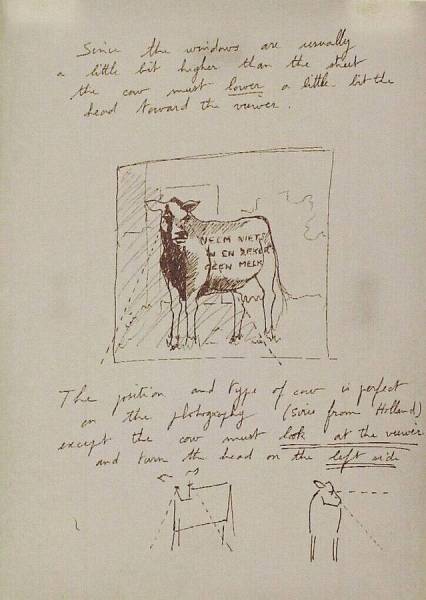 Since the windows are usually
a little bit higher than the street
the cow must lower a little bit the
head toward the viewer.
NEEM NIETS
IN EN ZEKER
GEEN MELK
The position and type of cow is perfect
on the photography (Svies from Holland)
except the cow must look at the viewer
and turn the head on the left side